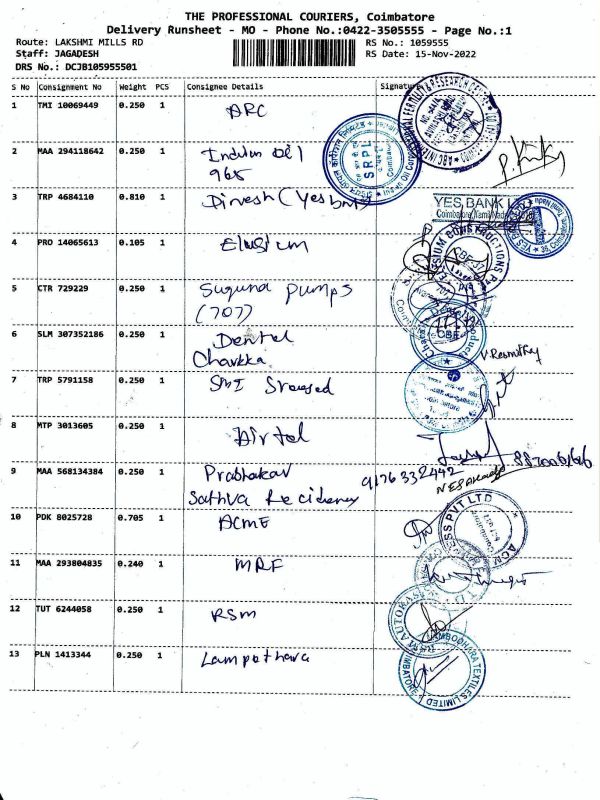 THE PROFESSIONAL COURIERS, Coimbatore
Delivery Runsheet - MO - Phone No.:0422-3505555 - Page No.:1
Route: LAKSHMI MILLS RD RS No.: 1059555
Staff: JAGADESH RS Date: 15-Nov-2022
DRS No.: DCJB105955501
S No Consignment No Weight PCS Consignee Details Signature
1 TMI 10069449 0.250 1 ARC
2 MAA 294118642 0.250 1 Indian Oil
965
SRPL
3 TRP 4684110 0.810 1 Dinesh (Yes bank)
YES BANK LTD
Coimbatore, Tamil Nadu
4 PRO 14065613 0.105 1 Elysium
5 CTR 729229 0.250 1 Suguna Pumps
(707)
6 SLM 307352186 0.250 1 Dental
Chavkka
7 TRP 5791158 0.250 1 SMI
8 MTP 3013605 0.250 1 Airtel
9 MAA 568134384 0.250 1 Prabhakar 9176332442
Sathva Recidency
10 PDK 8025728 0.705 1 ACME
11 MAA 293804835 0.240 1 MRF
12 TUT 6244058 0.250 1 RSM
13 PLN 1413344 0.250 1 Lampothara